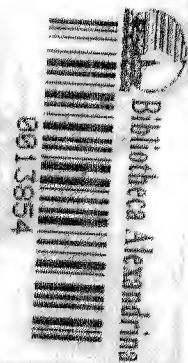 Bibliotheca Alexandrina
0013864